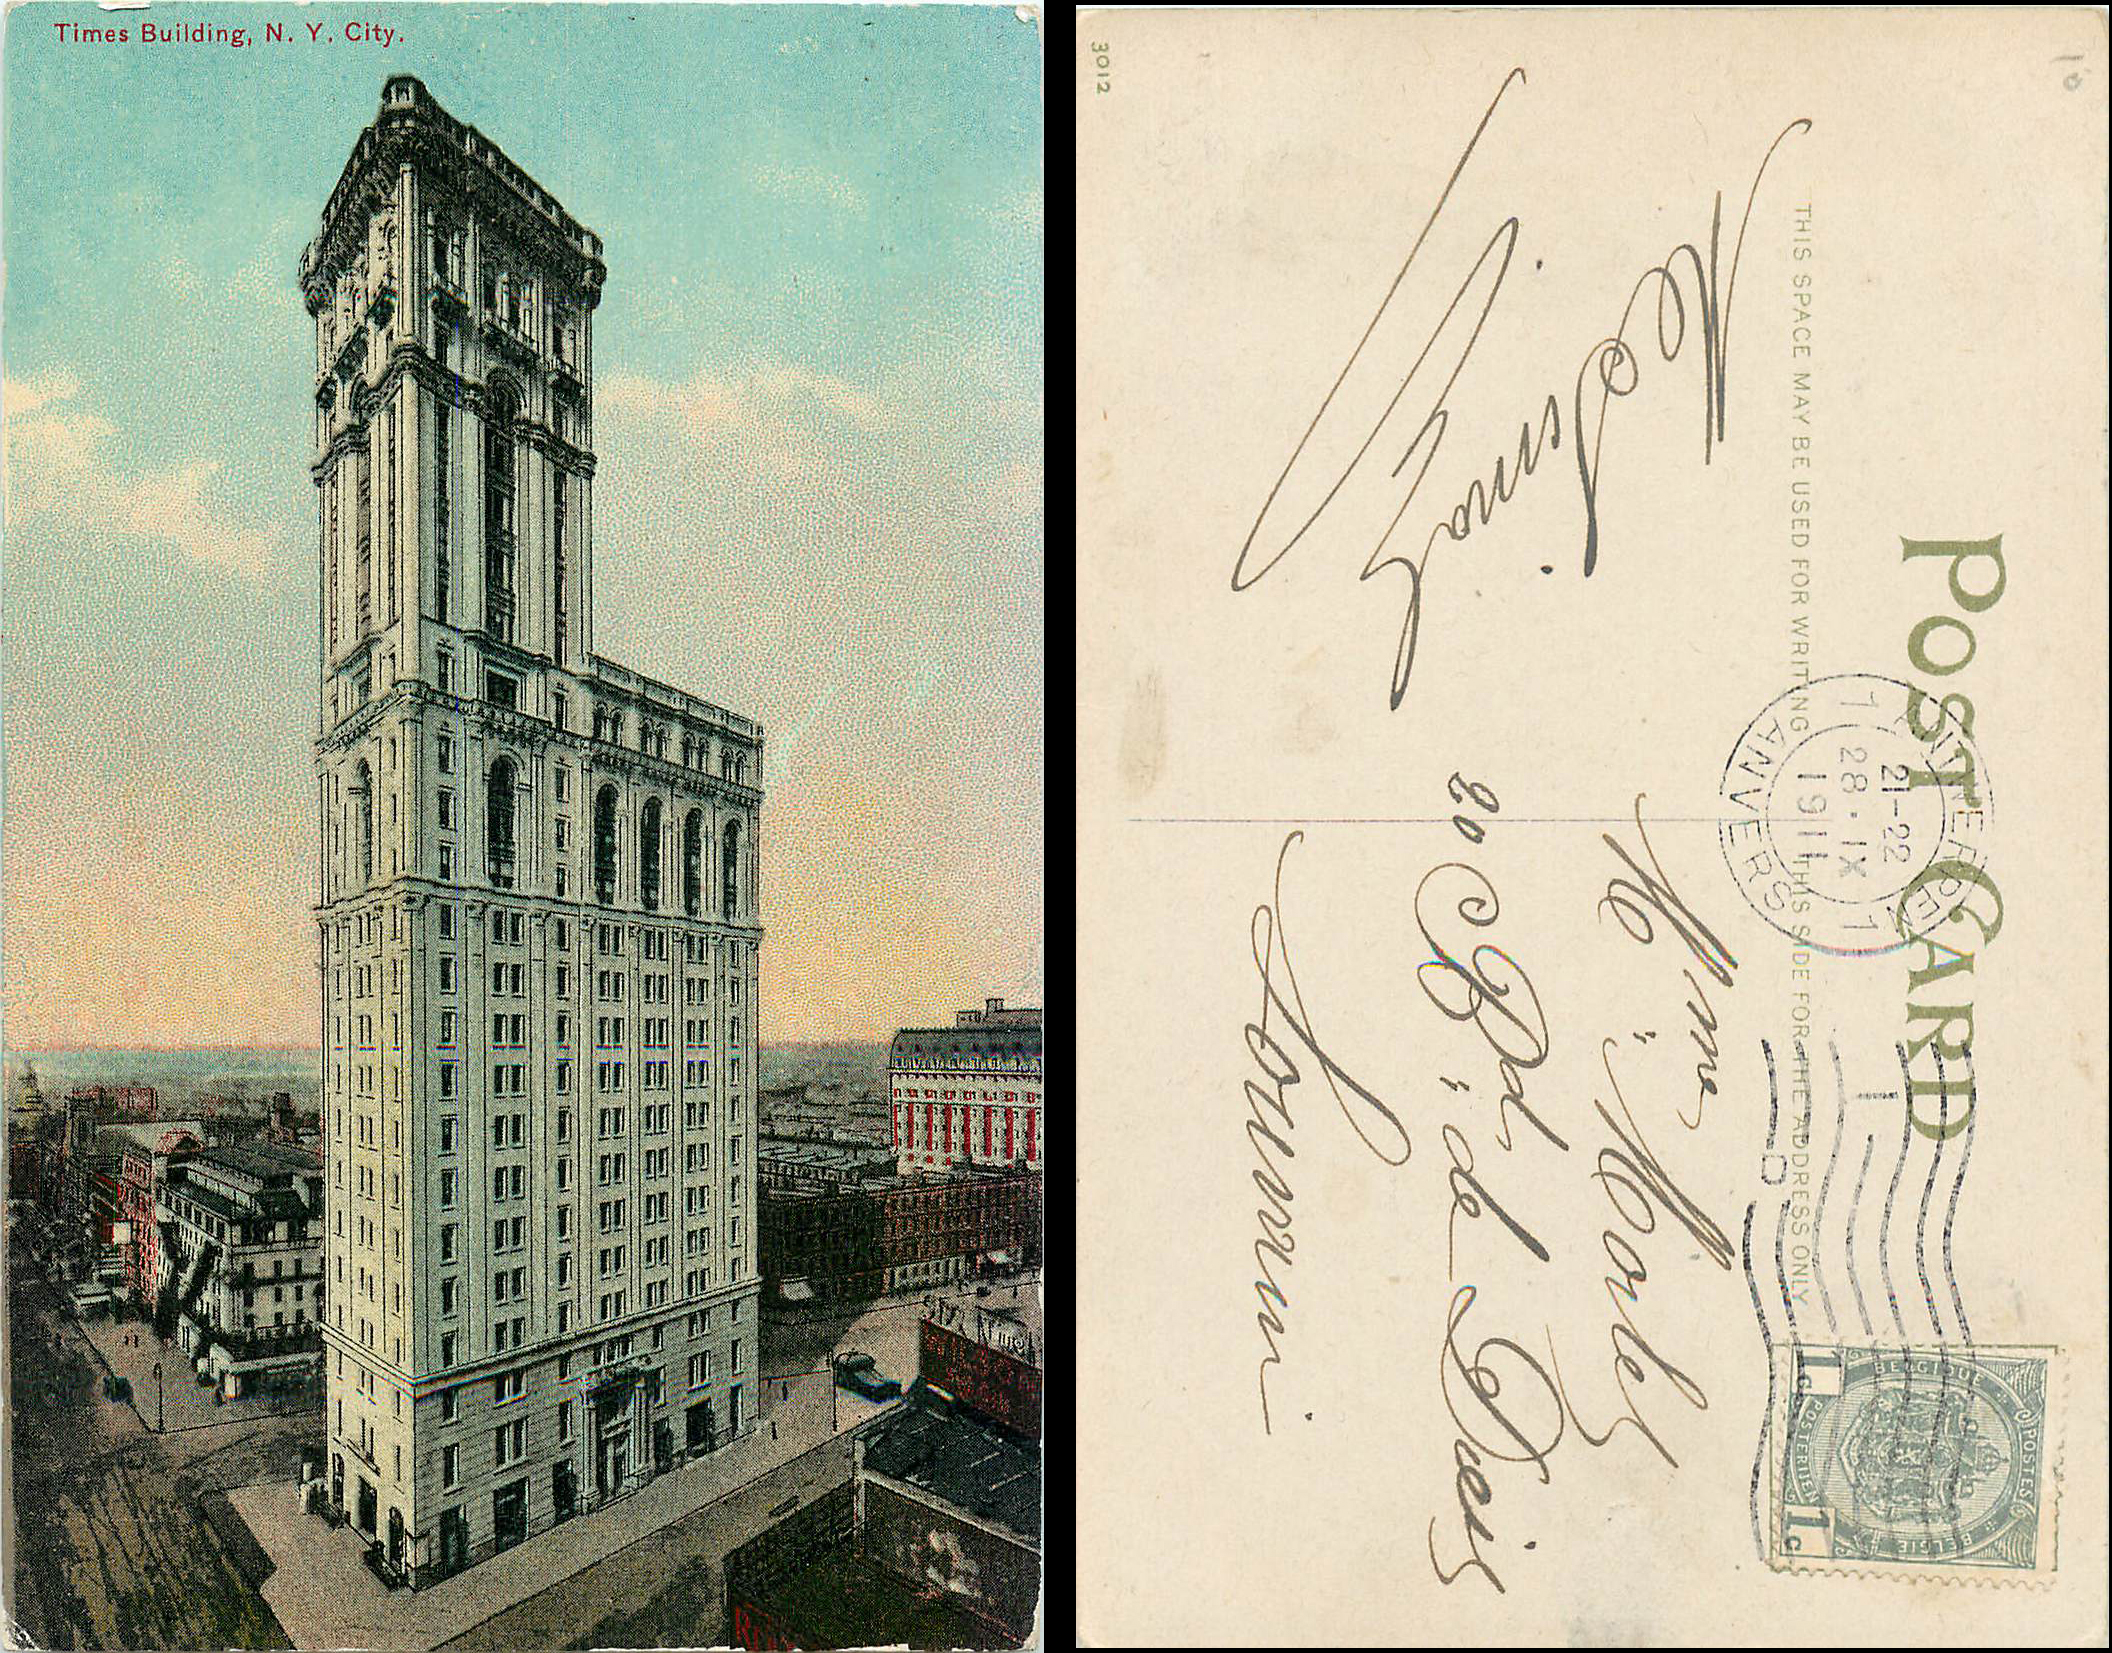 Times Building, N. Y. City.
3012
10
POST CARD
THIS SPACE MAY BE USED FOR WRITING
THIS SIDE FOR THE ADDRESS ONLY
1 ANTWERPEN 1
21-22
28·IX
1911
ANVERS
BELGIQUE
POSTES
BELGIE
POSTERIJEN
1c
1c
Mme
20 Bd de
Louvain